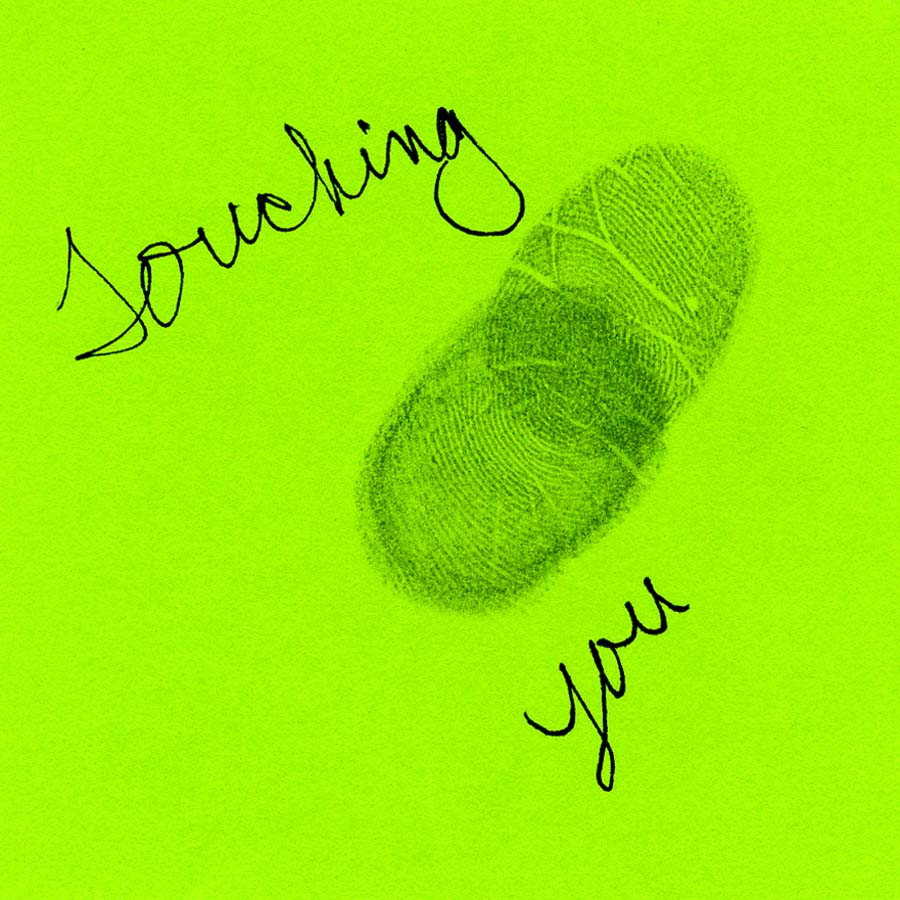 Touching
you